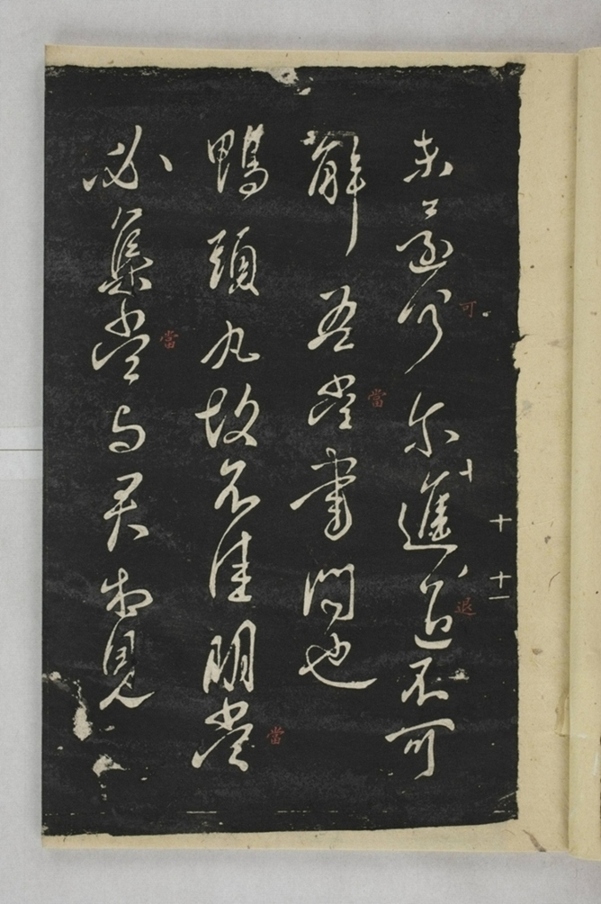 未還何尔進退不可
解吾當書問也
鴨頭丸故不佳明當
必集當与君相見
十 十一
可
退
當
當
當